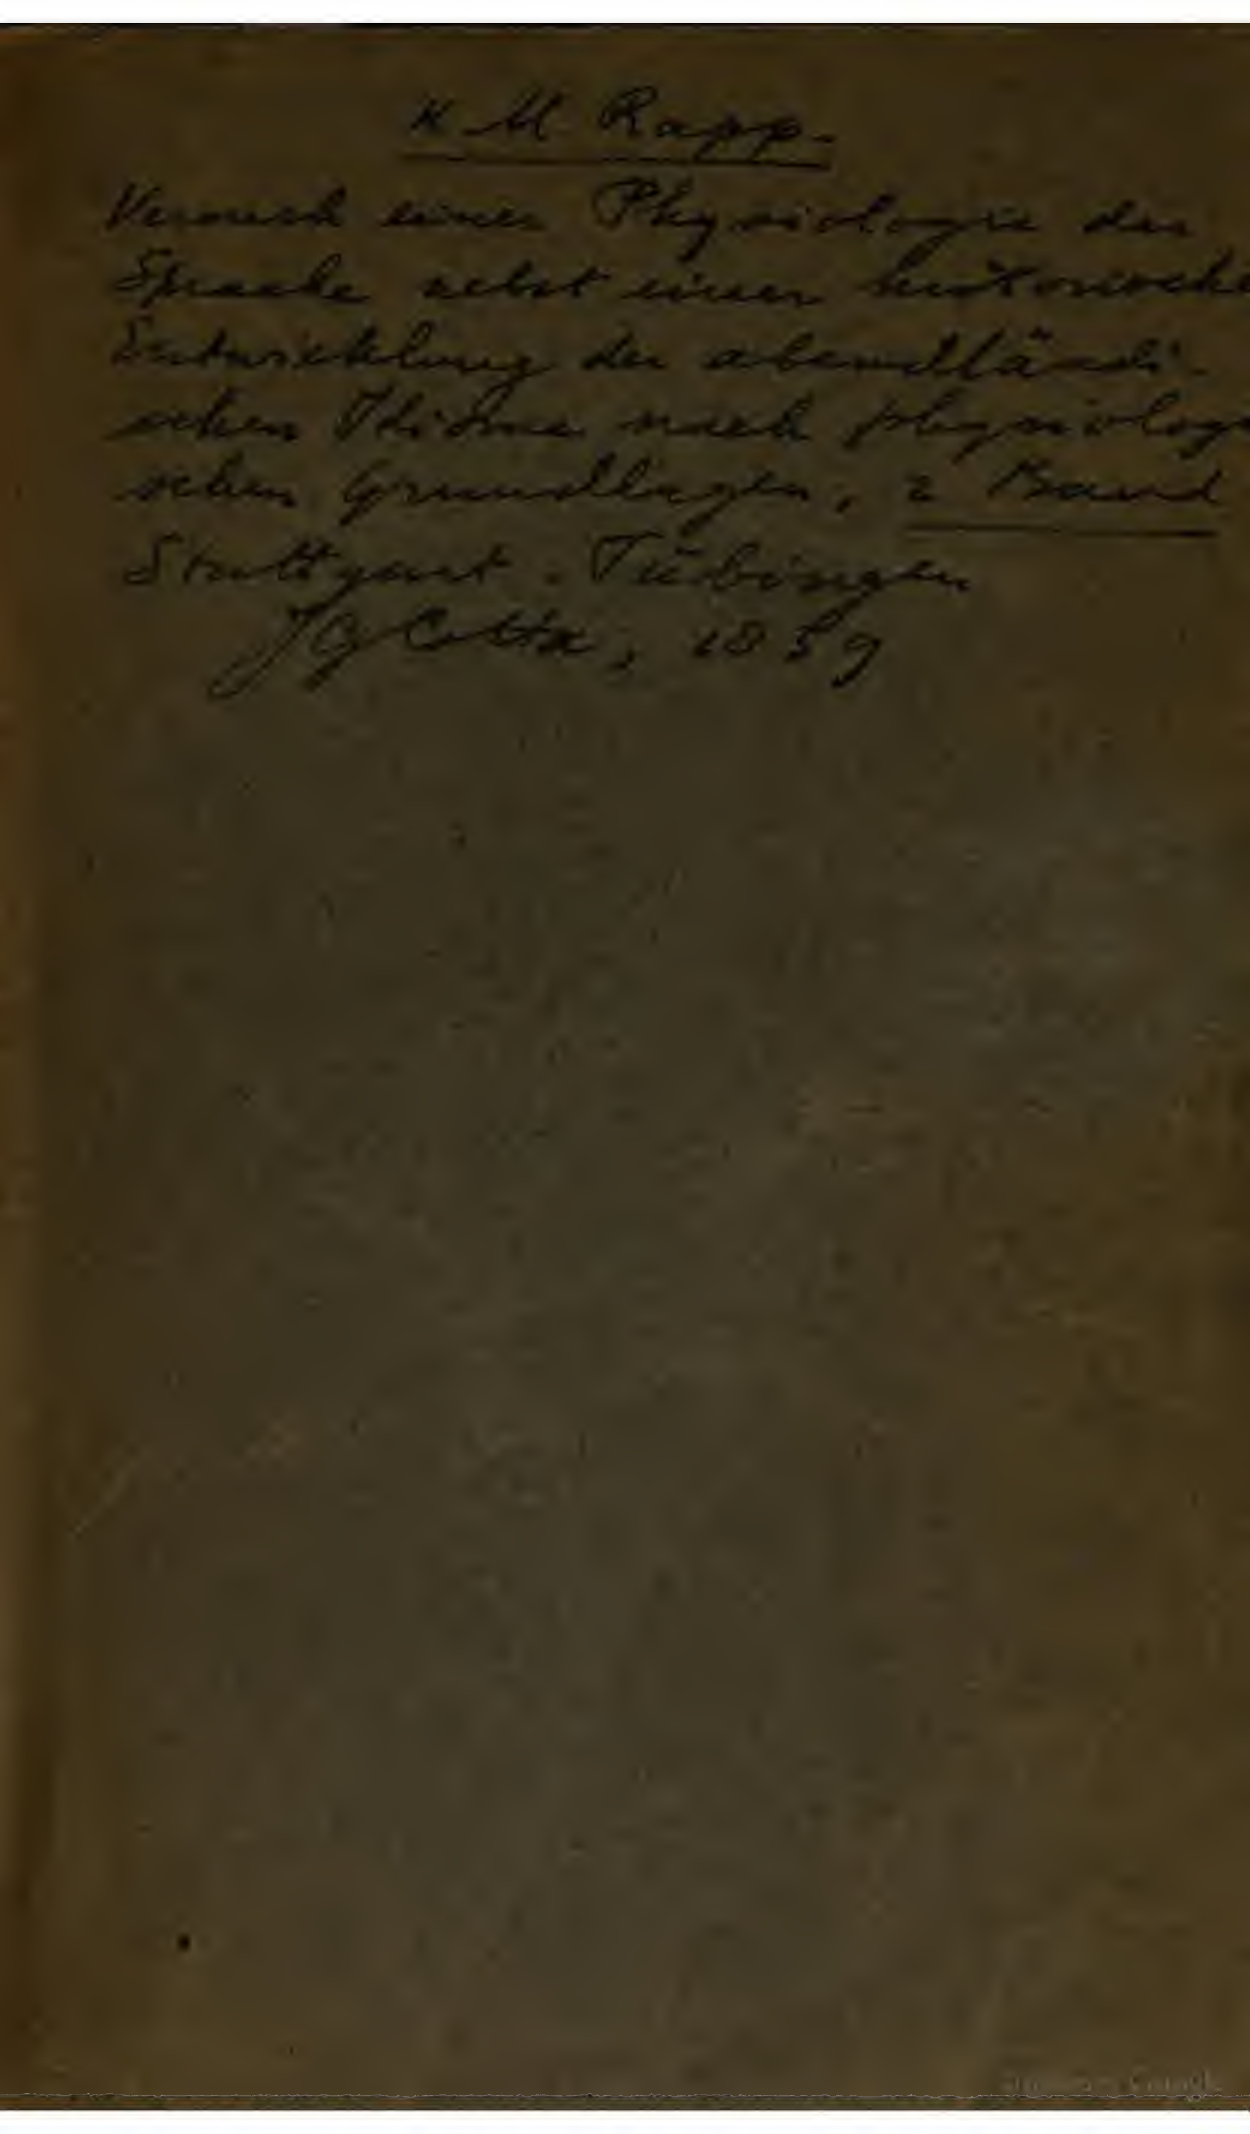 K M Rapp.
Versuch einer Physiologie der
Sprache nebst einer historische
Entwicklung der abendländi-
schen Idiome nach physiolog
schen Grundlagen, 2 Band
Stuttgart. Tübingen
JG Cotta, 1859
Google